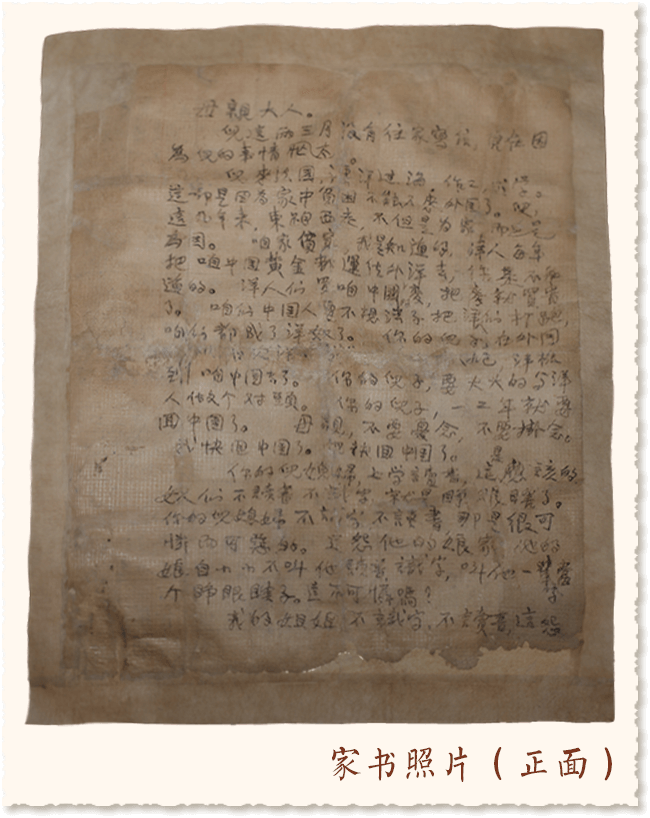 母親大人。
兒這兩三月沒有往家寫信，兒在因
為兒的事情
兒來法国，漂洋过海，作工，
這都是因為家中貧困不能不來外国了。兒，
這几年來，東奔西走，不但是为家，而也是
为国。 咱家貧窮，我是知道的，洋人每年
把咱中国黄金都運往外洋去，你是不知
道的。 洋人们買咱中國麥，把麥就買貴
了。 咱们中国人要不想法子把洋人们打跑，
咱们都成了洋奴了。 你的兒子在外国
到咱中国去了。 你的兒子，要大大的与洋
人做个对頭。 你的兒子，一二年就要
回中国了。 母親，不要憂念，不要掛念。
我快回中国了。 我快回中国了。 是
你的兒媳婦，上学讀書，這應該的
女人们不讀書不識字就是睜眼瞎了。
你的兒媳婦不識字不讀書那是很可
憐而可怨的。 只怨他的娘家 他的
娘自小不叫他讀書識字，叫他一輩当
个睜眼瞎子。這不可憐嗎？ 子
我的姐姐，不識字，不讀書，這怨
家书照片（正面）